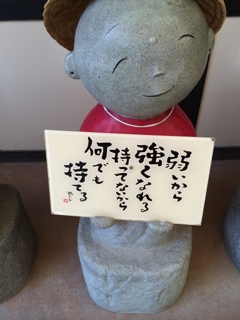 弱いから
強くなれる
持ってないから
何でも
持てる